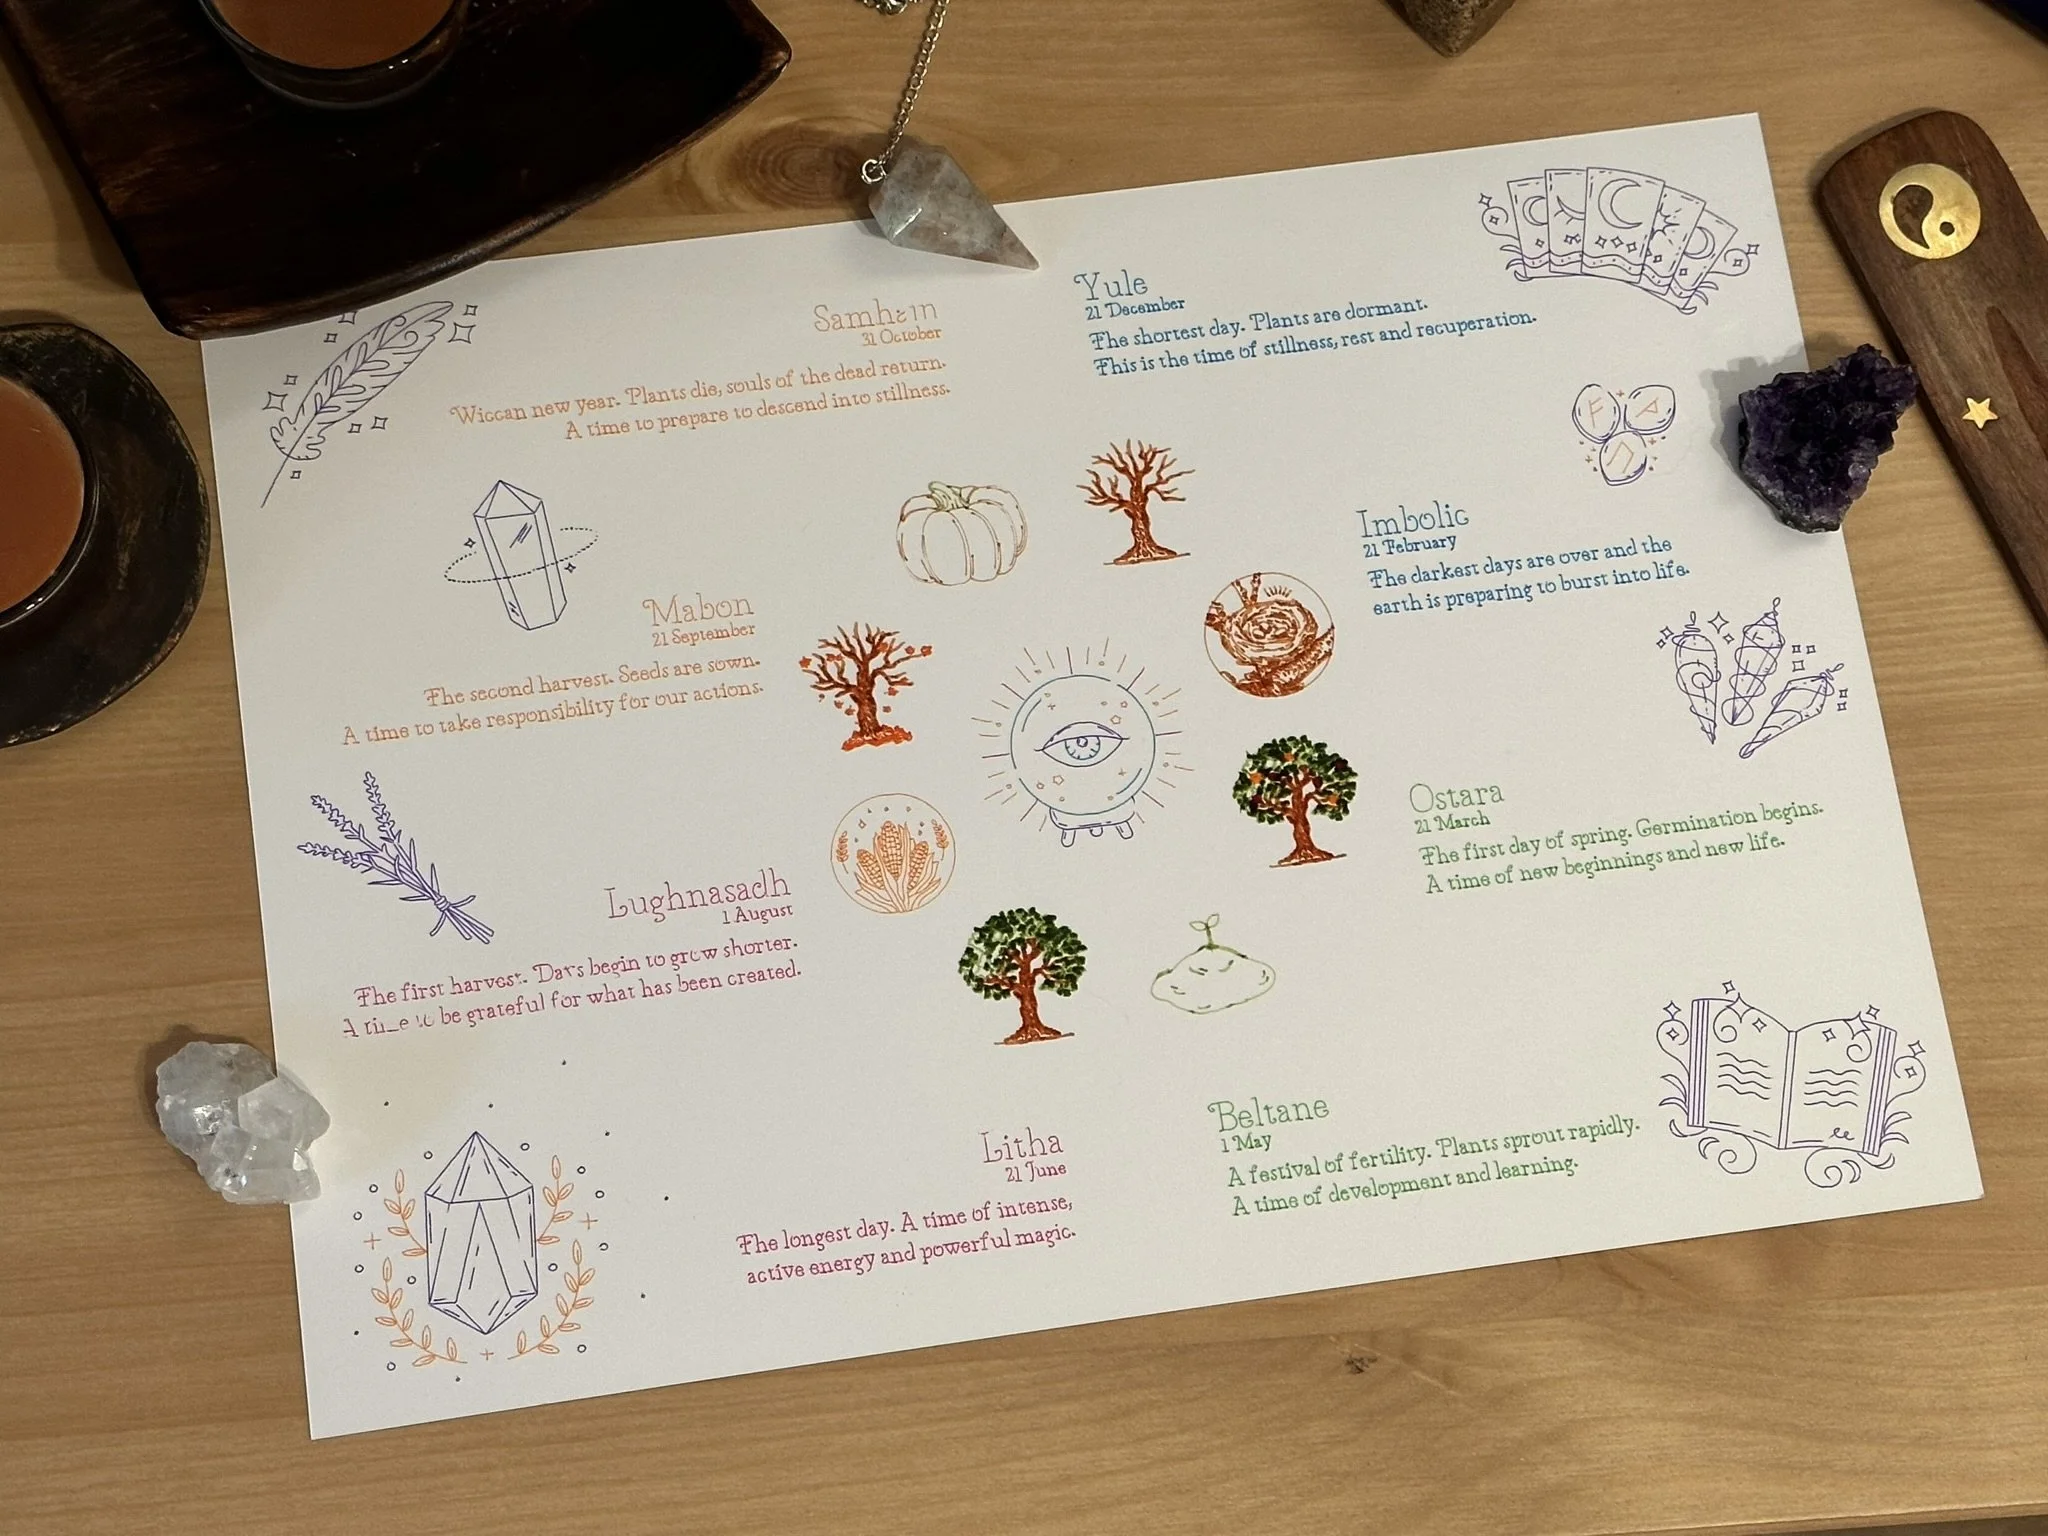 Samhain
31 October
Wiccan new year. Plants die, souls of the dead return.
A time to prepare to descend into stillness.
Yule
21 December
The shortest day. Plants are dormant.
This is the time of stillness, rest and recuperation.
Imbolic
21 February
The darkest days are over and the
earth is preparing to burst into life.
Ostara
21 March
The first day of spring. Germination begins.
A time of new beginnings and new life.
Beltane
1 May
A festival of fertility. Plants sprout rapidly.
A time of development and learning.
Litha
21 June
The longest day. A time of intense,
active energy and powerful magic.
Lughnasadh
1 August
The first harvest. Days begin to grow shorter.
A time to be grateful for what has been created.
Mabon
21 September
The second harvest. Seeds are sown.
A time to take responsibility for our actions.